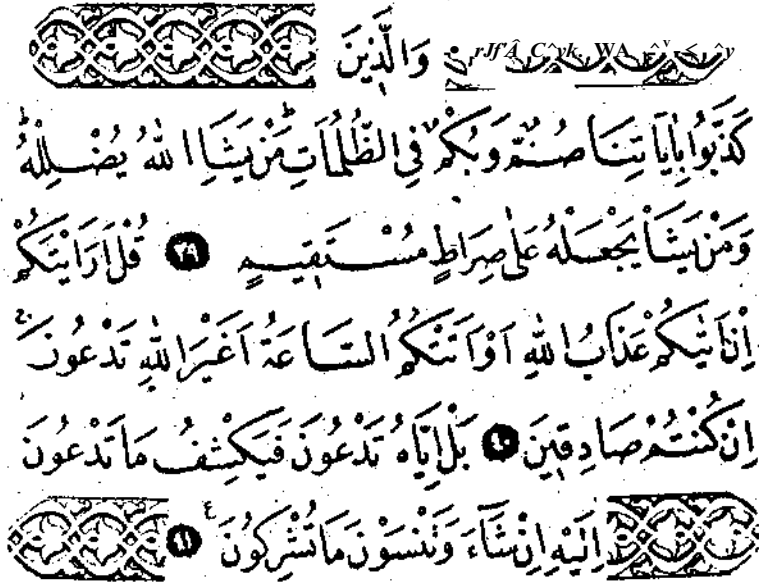 وَالَّذِينَ
كَذَّبُوا بِاٰيَاتِنَا صُمٌّ وَبُكْمٌ فِي الظُّلُمَاتِ مَنْ يَشَأِ اللّٰهُ يُضْلِلْهُ
وَمَنْ يَشَأْ يَجْعَلْهُ عَلٰى صِرَاطٍ مُسْتَقِيمٍ ٣٩ قُلْ اَرَاَيْتَكُمْ
اِنْ اَتٰيكُمْ عَذَابُ اللّٰهِ اَوْ اَتَتْكُمُ السَّاعَةُ اَغَيْرَ اللّٰهِ تَدْعُونَ
اِنْ كُنْتُمْ صَادِقِينَ ٤٠ بَلْ اِيَّاهُ تَدْعُونَ فَيَكْشِفُ مَا تَدْعُونَ
اِلَيْهِ اِنْ شَٓاءَ وَتَنْسَوْنَ مَا تُشْرِكُونَ ٤١